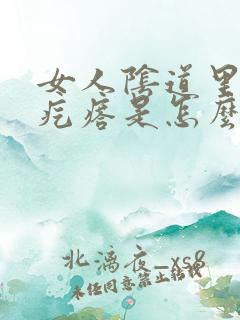 女人陰道里
疙瘩是怎麼
北漓夜_xs8
未经同意禁止转载